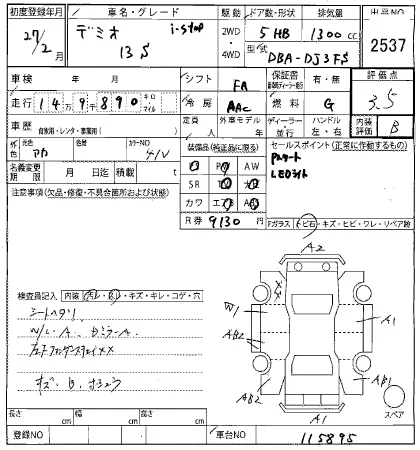 初度登録年月 車名・グレード 駆動 ドア数・形状 排気量 出品NO
27/2月 デミオ i-stop 2WD 5 HB 1300cc 2537
13S 4WD 型式 DBA-DJ3FS
車検 年 月 シフト FA 保証書 有・無 評価点
走行 14万9千890 キロ・マイル 冷房 AAC 燃料 G 3.5
車歴 自家用・レンタ・事業用( ) 定員 人 外車モデル 年式 ディーラー・並行 ハンドル 左・右 内装評価 B
外色 元色 アカ 色替 カラーNO 41V 装備品(純正品に限る) セールスポイント(正常に作動するもの)
名義変更期限 月 日迄 積載 t AW Pスタート
SR LEDライト
注意事項(欠品・修復・不具合箇所および状態) カワ エアB
R券 9130円
Fガラス トビ石・キズ・ヒビ・ワレ・リペア跡
A2
検査員記入 内装 汚レ・キズ・キレ・コゲ・穴
シートヘタリ W1 XX
W/L・A A1
AB2
左Fフェンダー XX
キズ・B AB2 AB1
スペア
長さ cm 幅 cm 高さ cm A1
登録NO 車台NO 115895